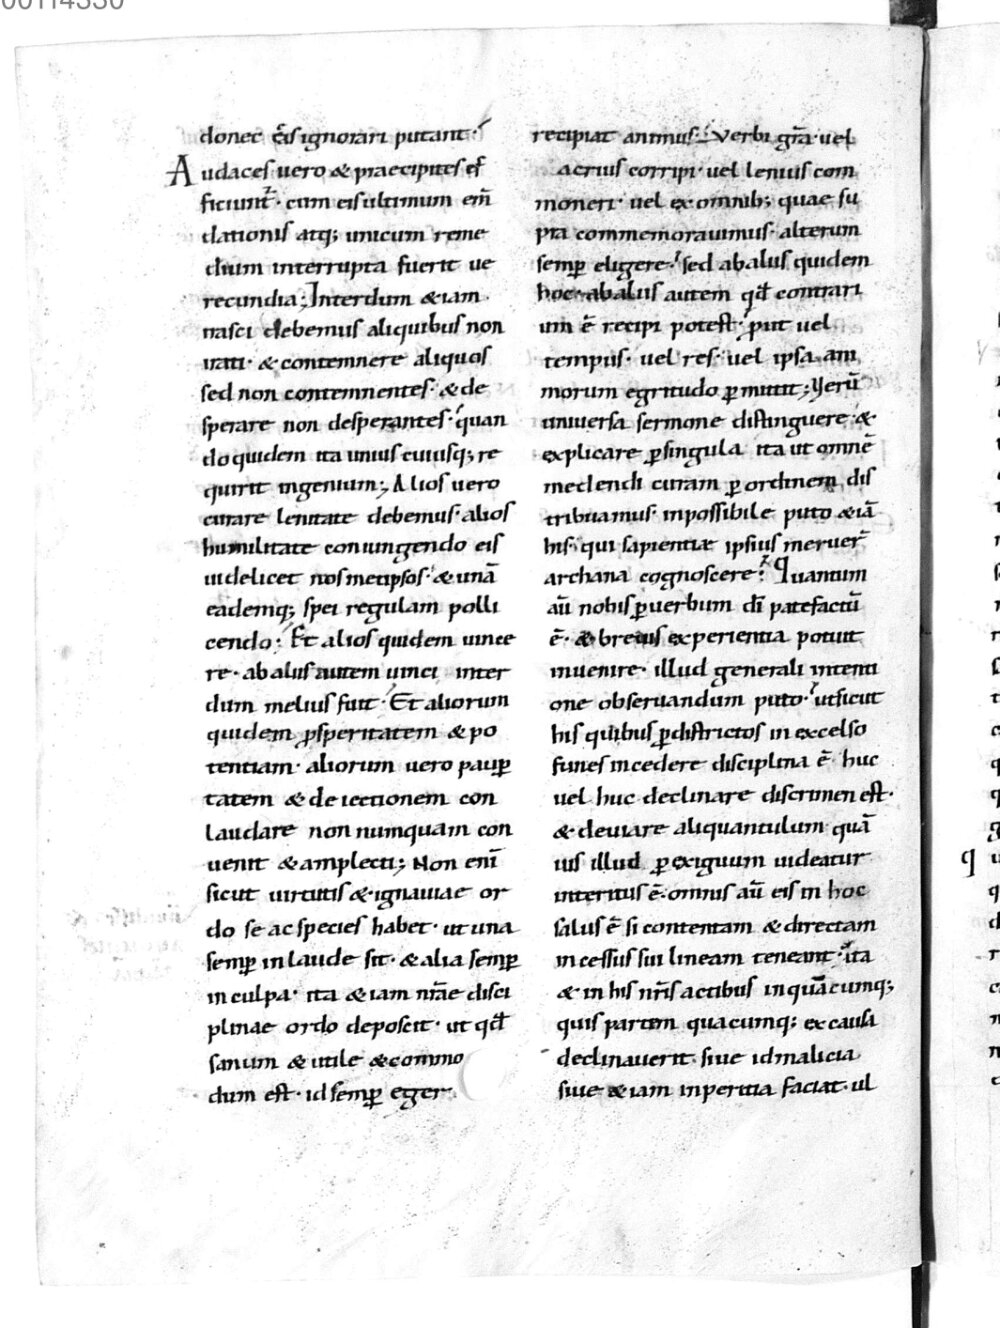 donec ẽ eis ignorari putant·
Audaces uero & praecipites ef
ficiunt᷑· cum eis ultimum em̃
dationis atq; unicum reme
dium interrupta fuerit ue
recundia; Interdum & iam
nasci debemus aliquibus non
irati· & contemnere aliquos
sed non contemnentes· & de
sperare non desperantes· quan
do quidem ita unius cuiusq; re
quirit ingenium; Alios uero
curare lenitate debemus· alios
humilitate coniungendo eis
uidelicet nos metipsos· & unā
eademq; spei regulam polli
cendo; Et alios quidem uince
re· ab aliis autem uinci inter
dum melius fuit· Et aliorum
quidem ꝓsperitatem & po
tentiam· aliorum uero pauꝑ
tatem & deiectionem con
laudare non numquam con
uenit & amplecti; Non enī
sicut uirtutis & ignauiae or
do se ac species habet· ut una
semꝑ in laude sit· & alia semꝑ
in culpa· ita & iam nr̃ae disci
plinae ordo deposcit· ut qđ
sanum & utile & commo
dum est· id semꝑ eger
recipiat animus· Verbi gr̃a· uel
acrius corripi· uel lenius com
moneri· uel ex omnib; quae su
pra commemorauimus· alterum
semꝑ eligere· sed ab aliis quidem
hoc· ab aliis autem qđ contrari
um ẽ recipi potest· ꝓut uel
tempus· uel res· uel ipsa am
morum egritudo ꝑmittit; Uerū
uniuersa sermone distinguere &
explicare ꝑ singula ita ut omnē
medendi curam ꝑ ordinem dis
tribuamus· inpossibile puto & iā
his· qui sapientiæ ipsius meruer̃
archana cognoscere· Quantum
aū nobis ꝑ uerbum dī patefactū
ē· & breuis experientia potuit
inuenire· illud generali intenti
one obseruandum puto· ut sicut
his quibus ꝑ districtos in excelso
funes incedere disciplina ẽ· huc
uel huc declinare discrimen est·
& deuiare aliquantulum quā
uis illud ꝑ exiguum uideatur
interitus ē· omnis aū eis in hoc
salus ẽ si contentam & directam
incessus sui lineam teneant· ita
& in his nr̃is actibus in quācumq;
quis partem quacumq; ex causa
declinauerit· siue id malicia
siue & iam inperitia faciat· ul